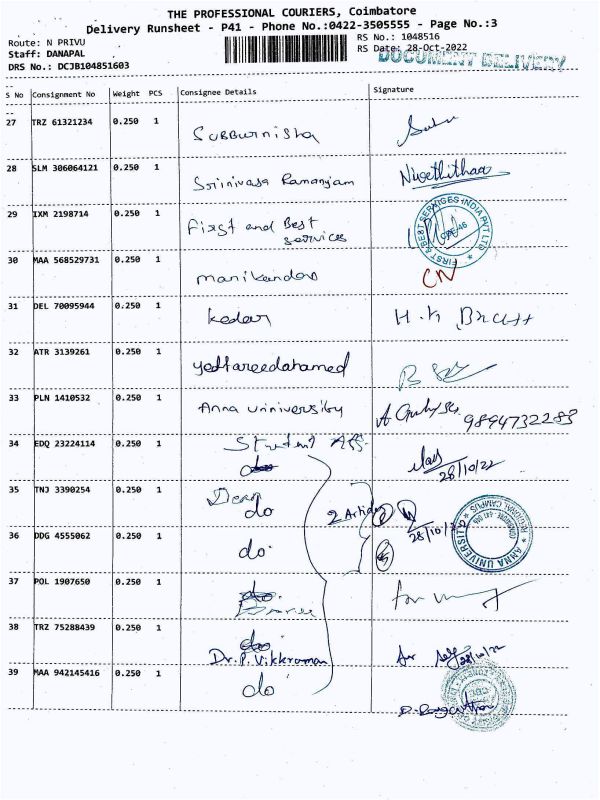 THE PROFESSIONAL COURIERS, Coimbatore
Delivery Runsheet - P41 - Phone No.:0422-3505555 - Page No.:3
Route: N PRIVU
RS No.: 1048516
Staff: DANAPAL
RS Date: 28-Oct-2022
DRS No.: DCJB104851603
DOCUMENT DELIVERY
S No Consignment No Weight PCS Consignee Details Signature
27 TRZ 61321234 0.250 1 Subburnisha
28 SLM 306064121 0.250 1 Srinivasa Ramanjam Nivethithaa
29 IXM 2198714 0.250 1 First and Best
services
FIRST & BEST SERVICES INDIA PVT LTD
30 MAA 568529731 0.250 1 manikandan CN
31 DEL 70095944 0.250 1 kedar H.K
32 ATR 3139261 0.250 1
33 PLN 1410532 0.250 1 Anna university 9894732283
34 EDQ 23224114 0.250 1 Student Aff.
do 28/10/22
35 TNJ 3390254 0.250 1 Dean
do 2 Articles
28/10/22
36 DDG 4555062 0.250 1 do
ANNA UNIVERSITY REGIONAL CAMPUS
37 POL 1907650 0.250 1 do
38 TRZ 75288439 0.250 1 do
Dr. P. Vikkraman 28/10/22
39 MAA 942145416 0.250 1 do